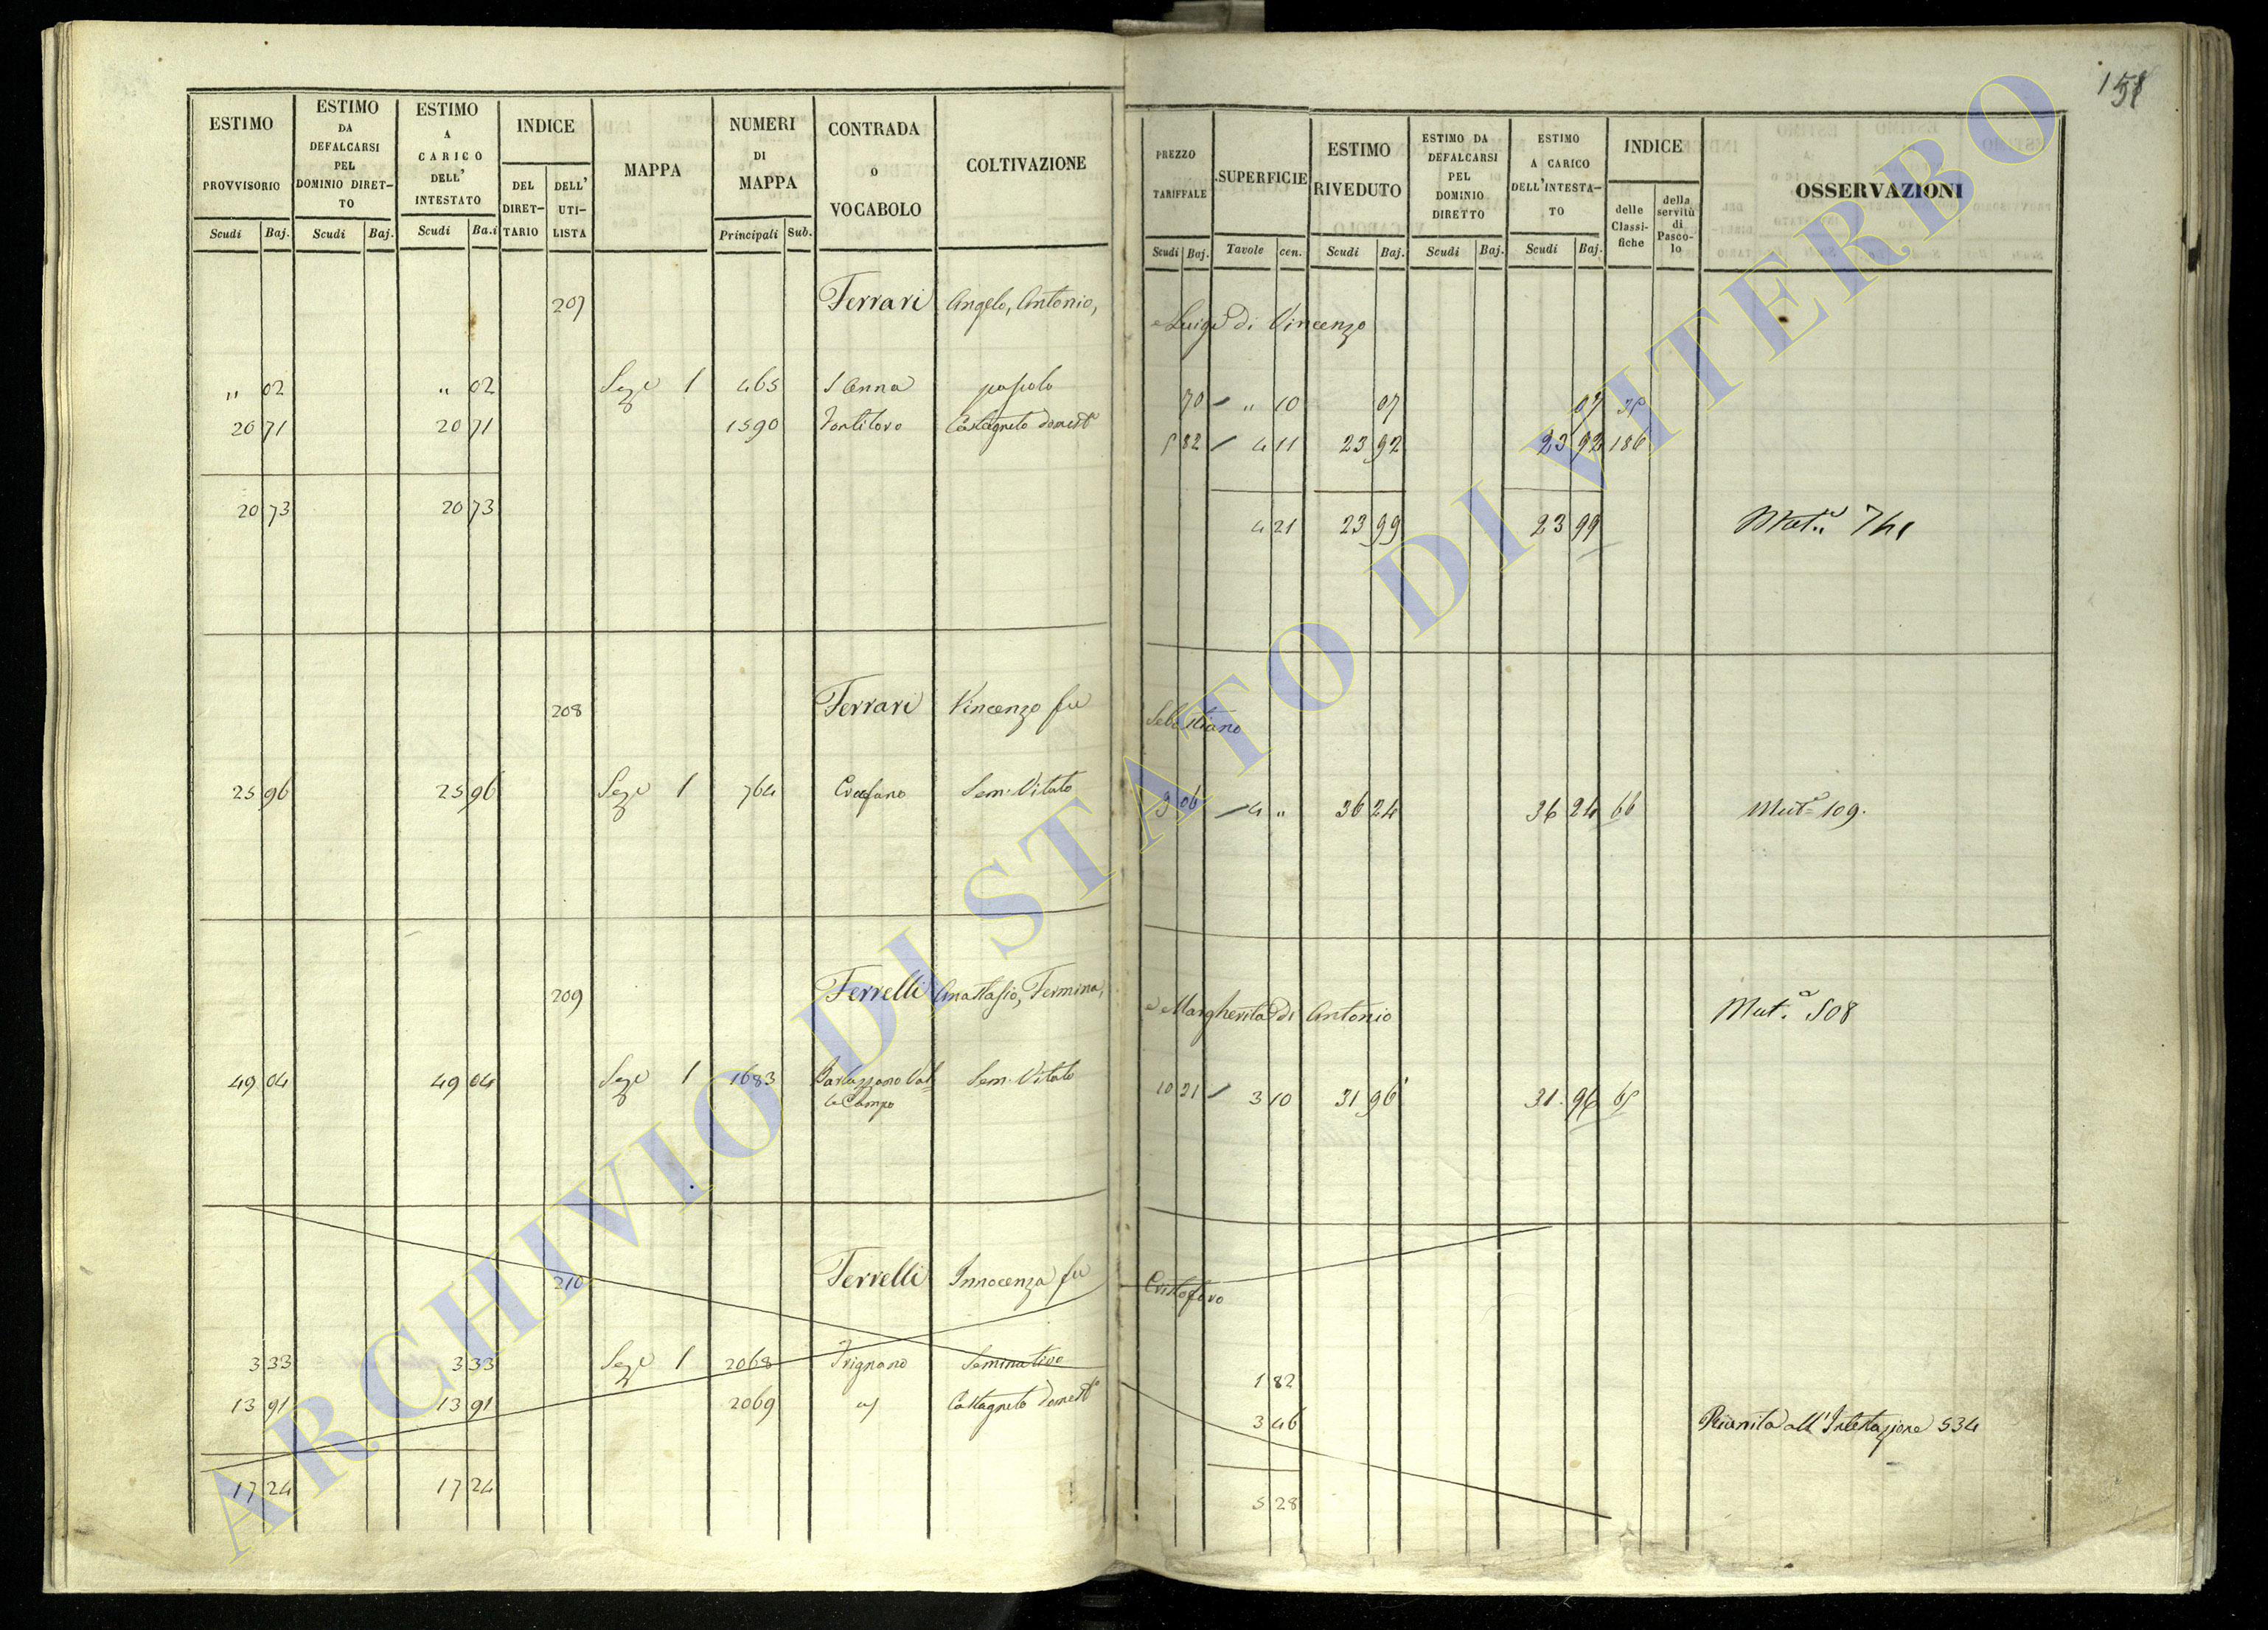 151
ESTIMO PROVVISORIO
ESTIMO DA DEFALCARSI PEL DOMINIO DIRET-TO
ESTIMO A CARICO DELL' INTESTATO
INDICE
DEL DIRET-TARIO
DELL' UTI-LISTA
MAPPA
NUMERI DI MAPPA
CONTRADA O VOCABOLO
COLTIVAZIONE
PREZZO TARIFFALE
SUPERFICIE
ESTIMO RIVEDUTO
ESTIMO DA DEFALCARSI PEL DOMINIO DIRETTO
ESTIMO A CARICO DELL'INTESTA-TO
INDICE
delle Classi-fiche
della servitù di Pasco-lo
OSSERVAZIONI
Scudi Baj. Scudi Baj. Scudi Ba.i Principali Sub. Scudi Baj. Tavole cen. Scudi Baj. Scudi Baj. Scudi Baj.
207 Ferrari Angelo, Antonio, e Luigi di Vincenzo
" 02 " 02 Sez.e 1 465 S Anna 70 " 10 07 07
20 71 20 71 1590 Castagneto domest.o 5 82 4 11 23 92 23 92 186
20 73 20 73 4 21 23 99 23 99 Mut.a 741
208 Ferrari Vincenzo fu Sebastiano
25 96 25 96 Sez.e 1 764 Sem. Vitato 9 06 4 " 36 24 36 24 66 Mut.a 109.
209 Ferrelli Anastasio, Fermina, e Margherita di Antonio Mut.a 508
49 04 49 04 Sez.e 1 1683 Sem. Vitato 10 31 3 10 31 96 31 96 65
210 Ferrelli Innocenza fu Cristoforo
3 33 3 33 Sez.e 1 2068 Trignano Seminativo 1 82
13 91 13 91 2069 Castagneto domest.o 3 46 Riunita all'Intestazione 534
17 24 17 24 5 28
ARCHIVIO DI STATO DI VITERBO